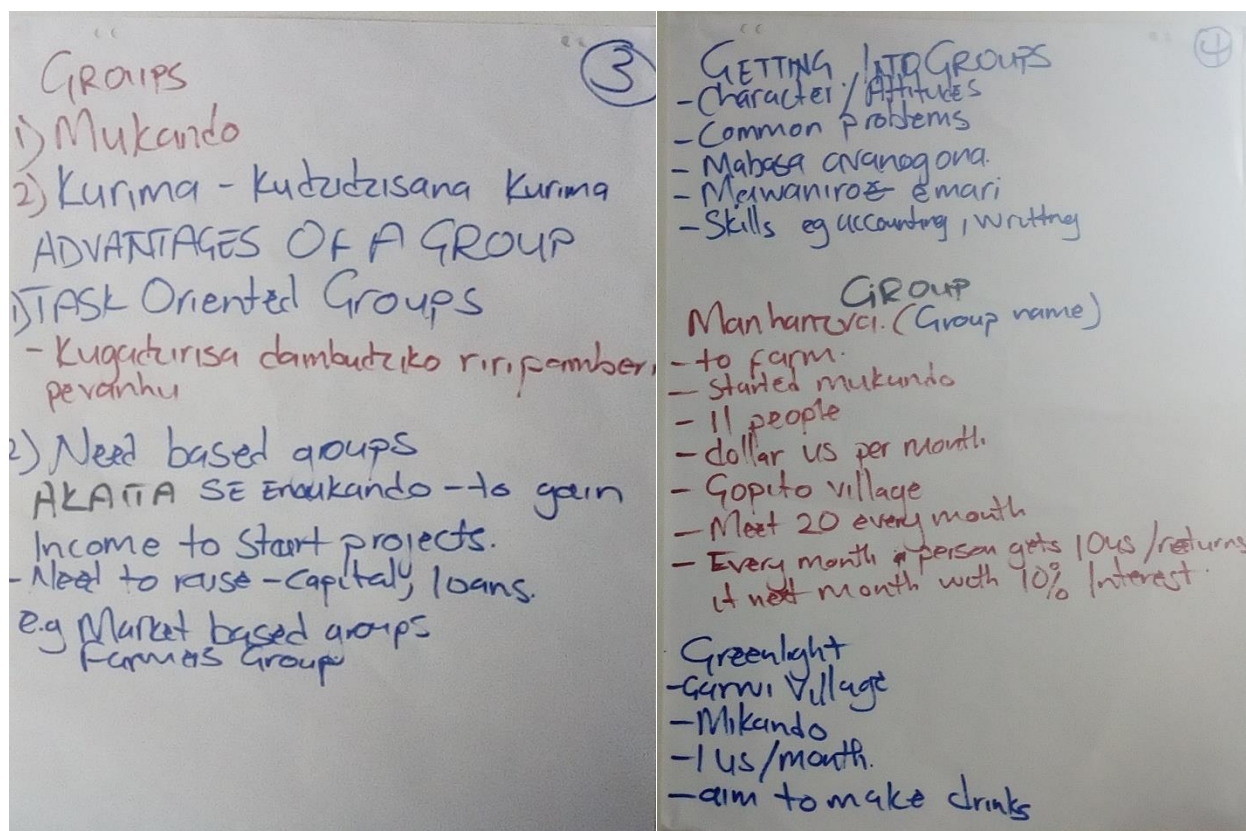 3
GROUPS
1) Mukando
2) Kurima - Kudzidzisana Kurima
ADVANTAGES OF A GROUP
1) TASK Oriented Groups
- Kugadzirisa dambudziko riripamberi
pevanhu
2) Need based groups
to gain
Income to start projects.
- Need to raise - Capital, loans.
e.g Market based groups
Farmers Group
4
GETTING INTO GROUPS
- Character / Attitudes
- Common problems
- Mabasa avanogona.
- emari
- Skills eg accounting, writting
GROUP
(Group name)
- to farm.
- Started mukando
- 11 people
- dollar us per month.
- Gopito village
- Meet 20 every month
- Every month person gets 10us/returns
it next month with 10% Interest.
Greenlight
- Village
- Mikando
- 1 us/month.
- aim to make drinks